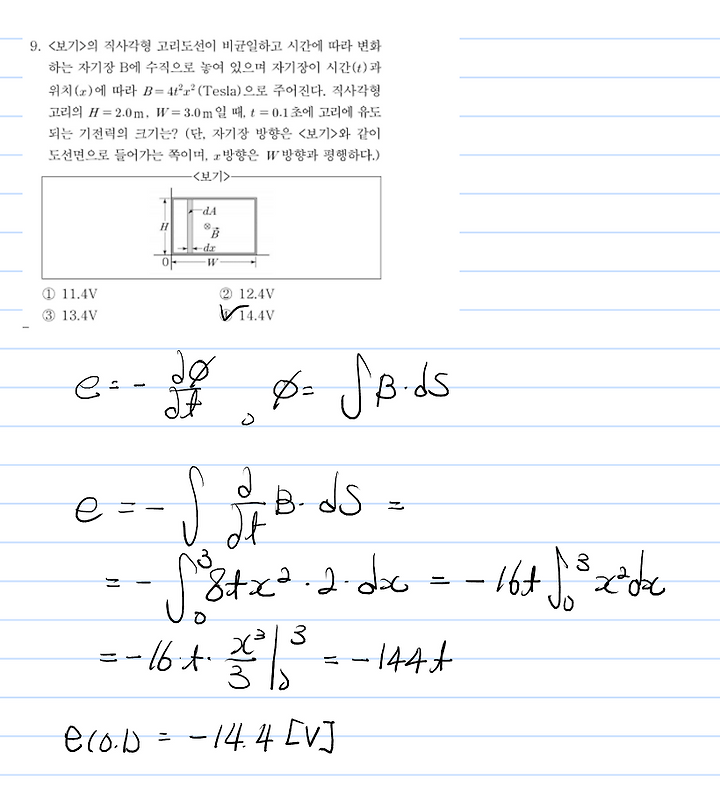 9. <보기>의 직사각형 고리도선이 비균일하고 시간에 따라 변화
하는 자기장 B에 수직으로 놓여 있으며 자기장이 시간(t)과
위치(x)에 따라 B = 4t²x² (Tesla)으로 주어진다. 직사각형
고리의 H = 2.0m, W = 3.0m일 때, t = 0.1초에 고리에 유도
되는 기전력의 크기는? (단, 자기장 방향은 <보기>와 같이
도선면으로 들어가는 쪽이며, x방향은 W방향과 평행하다.)
<보기>
dA
H
⊗
B⃗
dx
0
W
① 11.4V ② 12.4V
③ 13.4V 14.4V
e = - ∂φ/∂t , φ = ∫B·dS
e = - ∫ ∂/∂t B·dS =
= - ∫₀³ 8tx²·2·dx = -16t ∫₀³ x²dx
= -16·t· x³/3 |₀³ = -144t
e(0.1) = -14.4 [V]